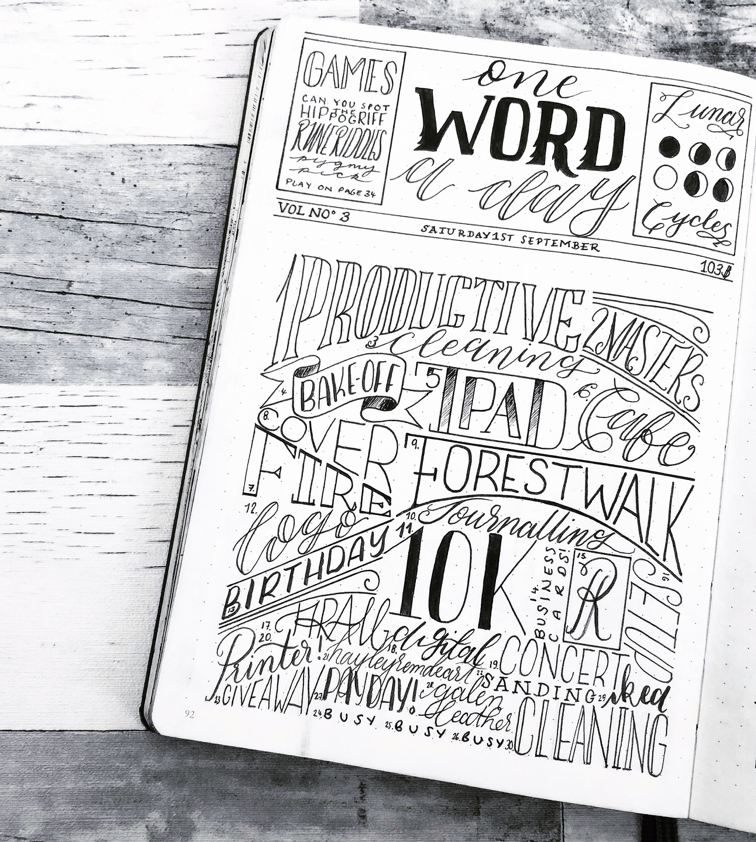 GAMES
CAN YOU SPOT
THE
HIPPOGRIFF
RUNE RIDDLES
pygmy
pick
PLAY ON PAGE 34
one
WORD
a day
Lunar
Cycles
VOL NO° 3
SATURDAY 1ST SEPTEMBER
1 PRODUCTIVE
2 MASTERS
3 cleaning
4. BAKE-OFF
5 IPAD
6. Cafe
8. COVER
7. FIRE
9. FOREST WALK
10. Journalling
12 logo
11. 10K
13 BIRTHDAY
14. BUSINESS CARDS!
15 R
16
17. HRALL
18. digital
19. CONCERT
20. Printer!
21 hayleyremdeart
22 SANDING
23 GIVEAWAY
27 PAYDAY!
28 galen
leather
29 iked
24. BUSY
25. BUSY
26. BUSY
30 CLEANING
92